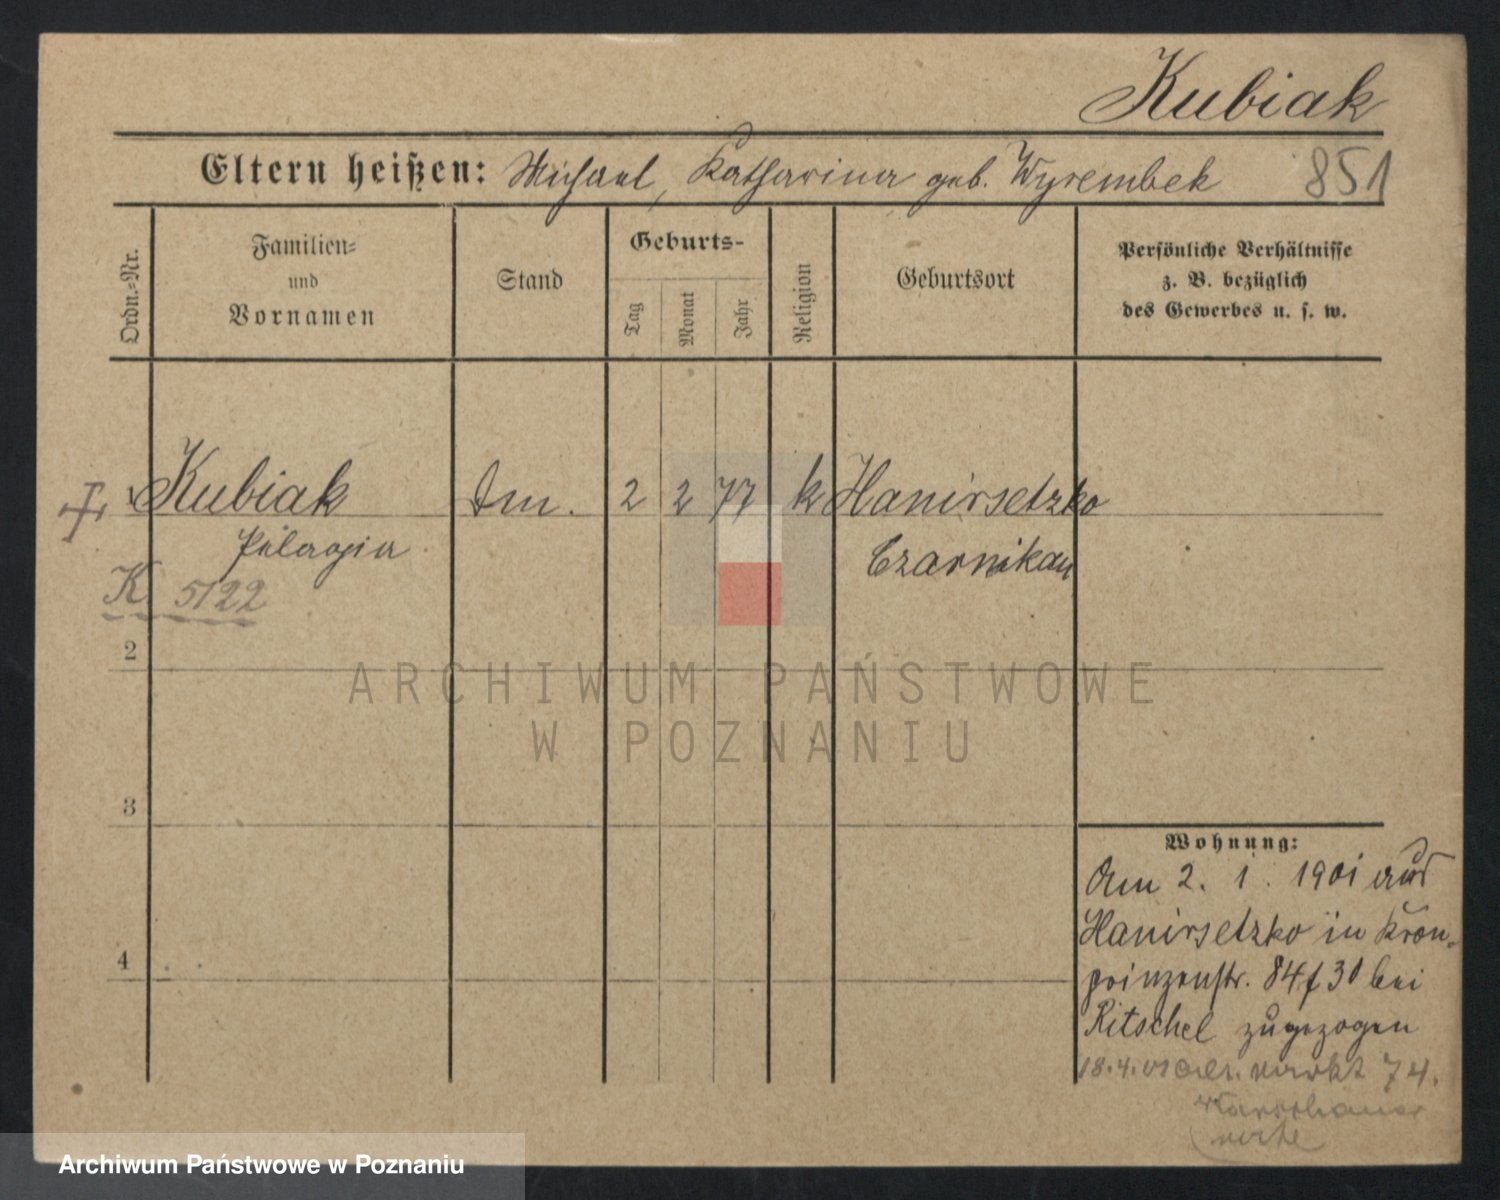 Kubiak
Eltern heißen: Michael, Katharina geb. Wyrembek 851
Ordn.-Nr.
Familien-
und
Vornamen
Stand
Geburts-
Tag
Monat
Jahr
Religion
Geburtsort
Persönliche Verhältnisse
z. B. bezüglich
des Gewerbes u. s. w.
1 Kubiak Dm. 2 2 77 k Hanirsetzko
Pelagia Czarnikau
K 5122
2
ARCHIWUM PAŃSTWOWE
W POZNANIU
3
Wohnung:
Am 2. 1. 1901 aus
Hanirsetzko in Kron-
4
prinzenstr. 84 f 30 bei
Ritschel zugezogen
18.4.01 markt 74.
Archiwum Państwowe w Poznaniu